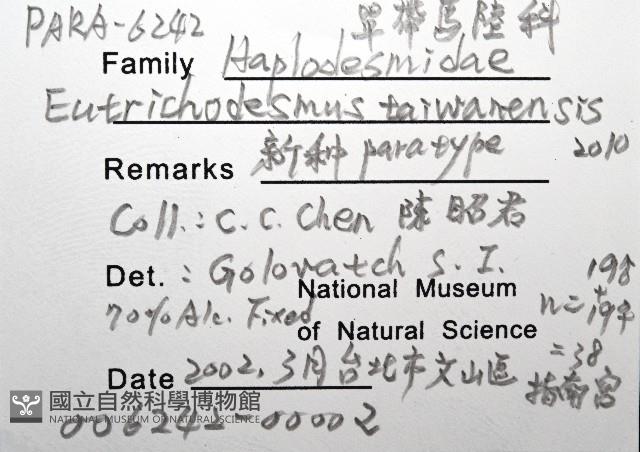 PARA-6242 單帶馬陸科
Family Haplodesmidae
Eutrichodesmus taiwanensis
Remarks 新種 paratype 2010
Coll.: C.C. Chen 陳昭君
Det.: Golovatch S. I. 19♀
National Museum
70% Alc. Fixed n=+19♂
of Natural Science
=38
Date 2002, 3月台北市文山區
指南宮
國立自然科學博物館
NATIONAL MUSEUM OF NATURAL SCIENCE
006242 00002